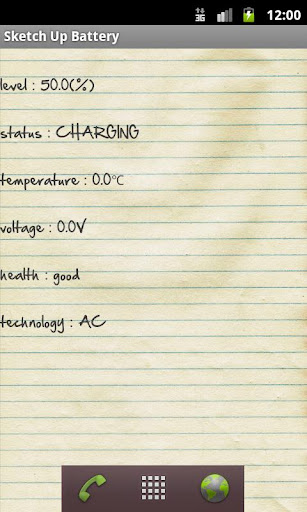 3G 12:00
Sketch Up Battery
level : 50.0(%)
status : CHARGING
temperature : 0.0℃
voltage : 0.0V
health : good
technology : AC